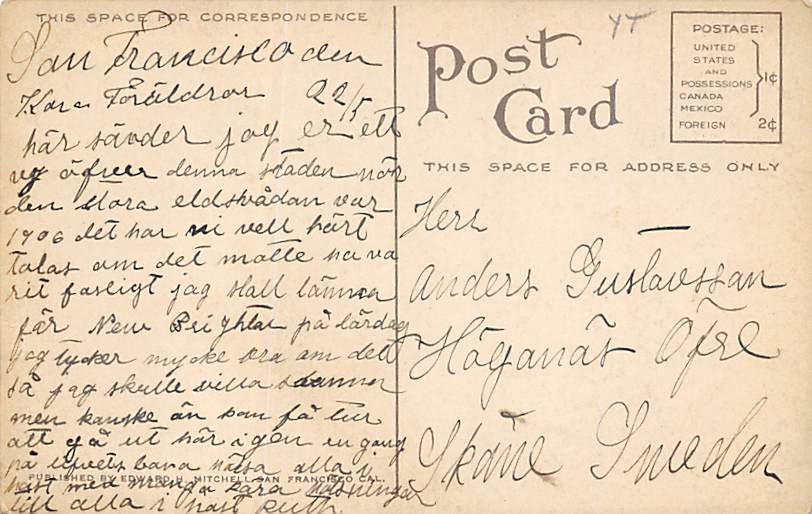 THIS SPACE FOR CORRESPONDENCE
San Francisco den
Kära Föräldrar 22/5
här sänder jag er ett
vy öfver denna staden när
den stora eldsvådan var
1906 det har ni vell hört
talas om det måtte ha va
rit farligt jag skall lämna
får New Brighton på lördag
jag tycker mycke bra om det
så jag skulle villa stanna
men kanske än som få tur
att gå ut här igen en gång
på lifvets bana hälsa alla i
PUBLISHED BY EDWARD H. MITCHELL, SAN FRANCISCO CAL.
hast med många kära hälsningar
till alla i hast Ruth
YT
Post
Card
POSTAGE:
UNITED
STATES
AND
POSSESSIONS
CANADA
MEXICO
1¢
FOREIGN 2¢
THIS SPACE FOR ADDRESS ONLY
Herr
Anders Gustavssan
Höganäs Öfre
Skåne Sweden